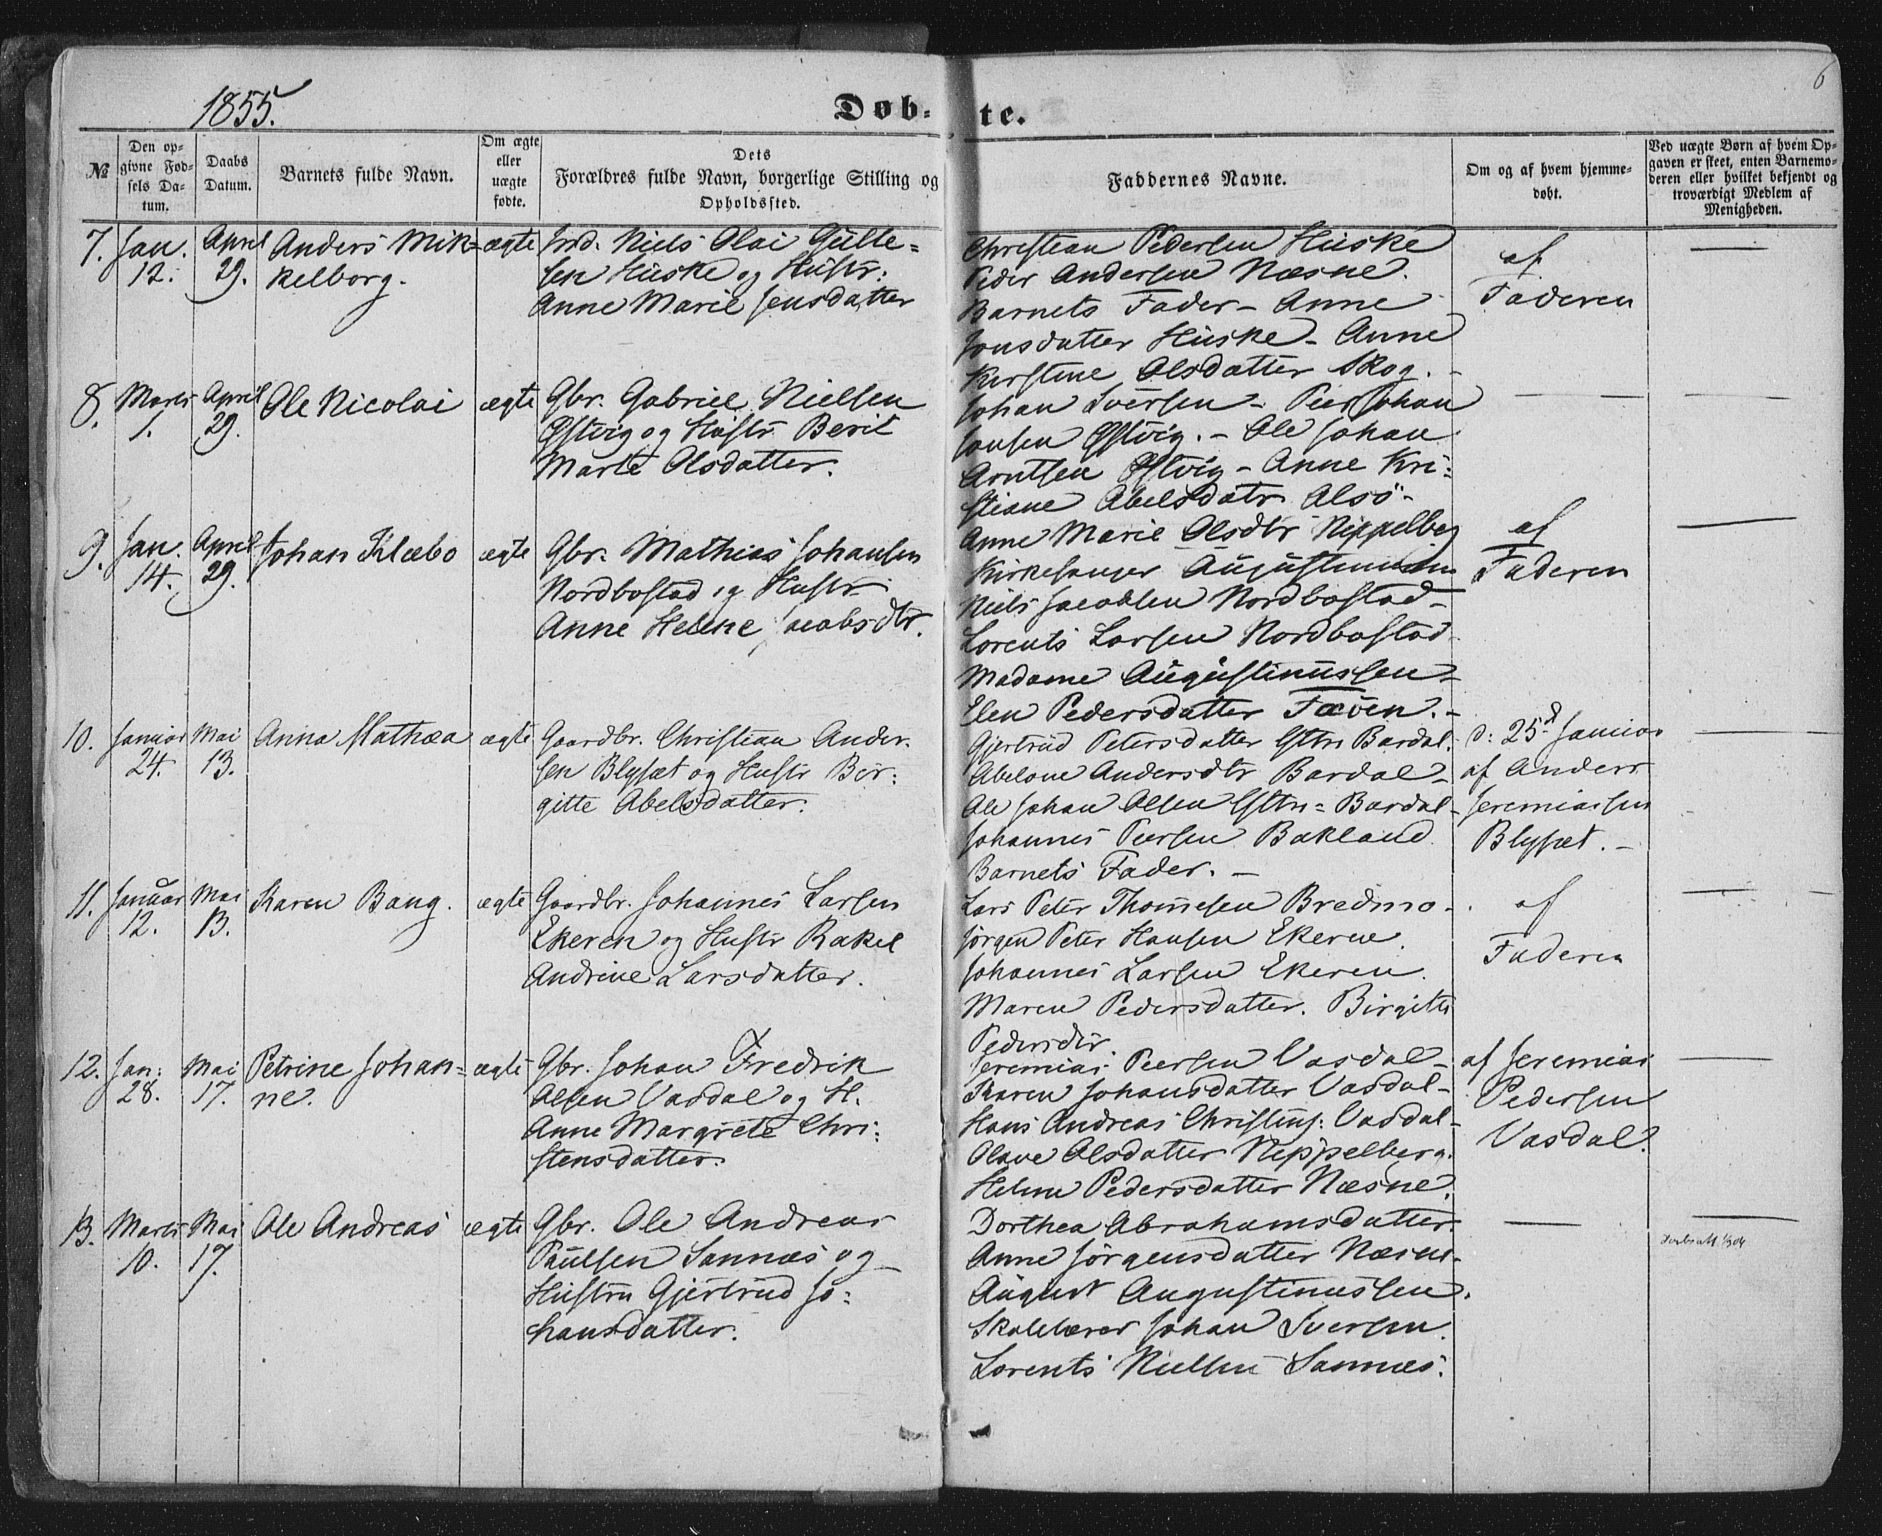 1855.
Døb-te.
6
№
Den op-
givne Fød-
sels Da-
tum.
Daabs
Datum.
Barnets fulde Navn.
Om ægte
eller
uægte
fødte.
Dets
Forældres fulde Navn, borgerlige Stilling og
Opholdssted.
Faddernes Navne.
Om og af hvem hjemme-
døbt.
Ved uægte Børn af hvem Op-
gaven er skeet, enten Barnemo-
deren eller hvilket bekjendt og
troværdigt Medlem af
Menigheden.
7.
Jan.
12.
April
29.
Anders Mik-
kelborg.
ægte
Ind. Niels Olai Gulle-
sen Huske og Hustr:
Anne Marie Jensdatter
Christian Pedersen Huske
Peder Andersen Næsne.
Barnets Fader - Anne
Jonsdatter Huske - Anne
Kirstine Olsdatter Skog. -
af
Faderen
8.
Marts
1.
April
29.
Ole Nicolai
ægte
Gbr. Gabriel Nielsen
Østvig og Hustr Berit
Marte Olsdatter.
Johan Iversen - Peer Johan
Jonsen Østvig. - Ole Johan
Arntsen Østvig - Anne Kri-
stiane Abelsdatr Alsö -
9.
Jan.
14.
April
29.
Johan Klæbo
ægte
Gbr. Mathias Johansen
Nordbostad og Hustr
Anne Helene Jacobsdtr.
Anne Marie Olsdtr Nippelberg
Kirkesanger Augustinussen
Niels Jacobsen Nordbostad -
Lorents Larsen Nordbostad
Madame Augustinussen -
Elen Pedersdatter -
af
Faderen
10.
Januar
24.
Mai
13.
Anna Mathæa
ægte
Gaardbr. Christian Ander-
sen Blysæt og Hustr Bir-
gitte Abelsdatter.
Gjertrud Petersdatter Bardal.
Abelone Andersdtr Bardal -
Ole Johan Olsen Bardal -
Johannes Peersen Bakland.
Barnets Fader. -
d: 25d Januar
af Anders
Jeremiassen
Blysæt. -
11.
Januar
12.
Mai
13.
Karen Bang.
ægte
Gaardbr. Johannes Larsen
Ekeren og Hustr Rakel
Andrine Larsdatter.
Lars Peter Thomesen Bredmo -
Jørgen Peter Hansen Ekeren.
Johannes Larsen Ekeren.
Maren Pedersdatter. Birgitte
Pedersdtr.
af
Faderen
12.
Jan:
28.
Mai
17.
Petrine Johan-
ne.
ægte
Gbr. Johan Fredrik
Olsen Vasdal og H.
Anne Margrete Chri-
stensdatter.
Jeremias Peersen Vasdal -
Karen Johansdatter Vasdal -
Hans Andreas Christens: Vasdal -
Olave Olsdatter Nippelberg.
Helene Pedersdatter Næsne.
af Jeremias
Pedersen
Vasdal.
13.
Marts
10.
Mai
17.
Ole Andreas
ægte
Gbr. Ole Andreas
Paulsen Sannæs og
Hustru Gjertrud Jo-
hansdatter.
Dorthea Abrahamsdatter.
Anne Jørgensdatter Næsne -
August Augustinussen.
Skolelærer Johan Iversen.
Lorents Nielsen Sannæs.